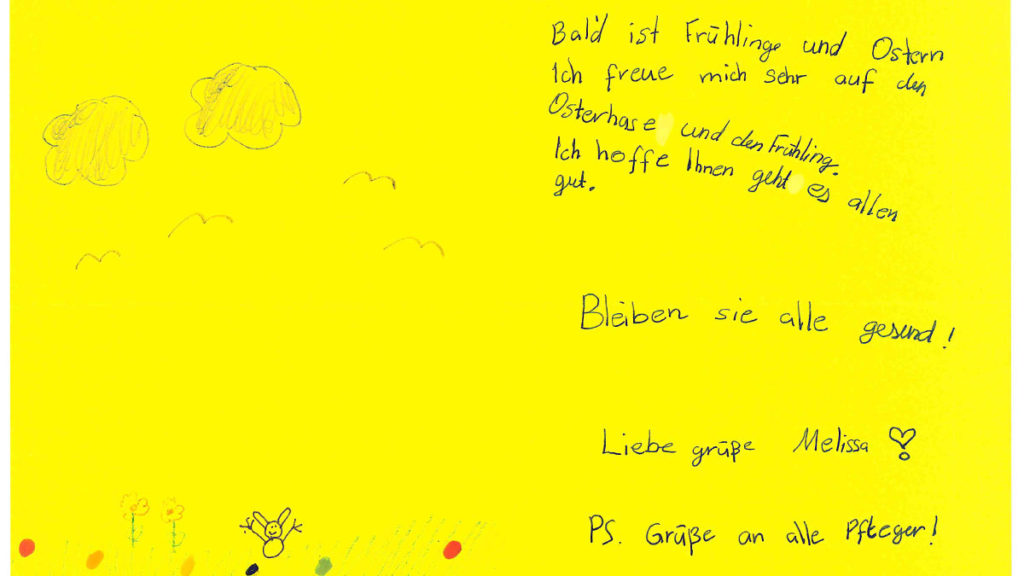 Bald ist Frühlinge und Ostern
Ich freue mich sehr auf den
Osterhase und den Frühling.
Ich hoffe Ihnen geht es allen
gut.
Bleiben sie alle gesund!
Liebe grüße Melissa
PS. Grüße an alle Pfleger!